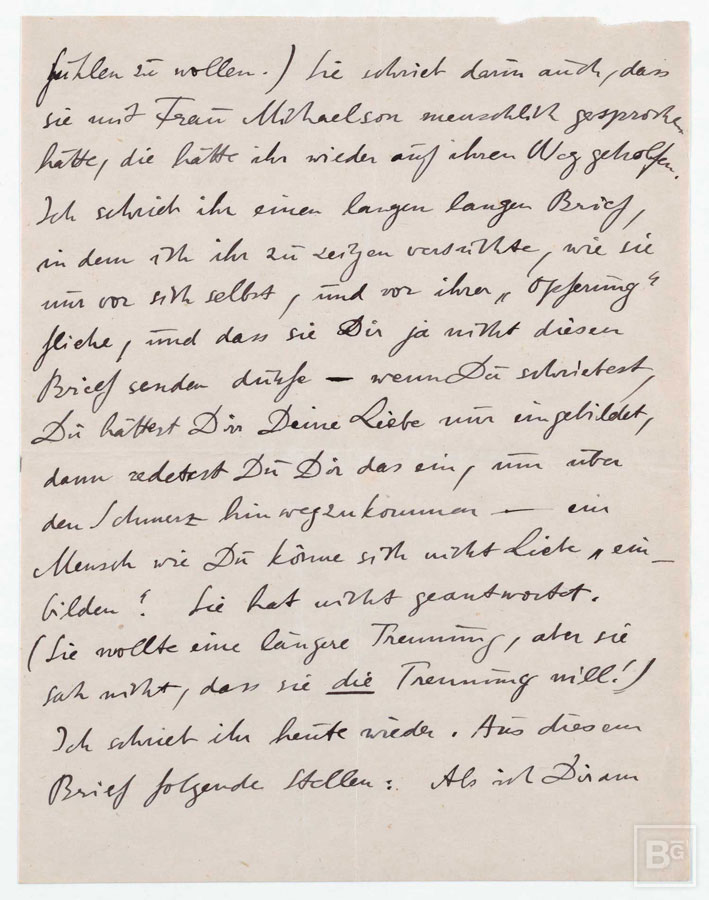 fühlen zu wollen.) Sie schrieb darin auch, dass
sie mit Frau Michaelson menschlich gesprochen
hätte, die hätte ihr wieder auf ihren Weg geholfen.
Ich schrieb ihr einen langen langen Brief,
in dem ich ihr zu zeigen versuchte, wie sie
nur vor sich selbst, und vor ihrer „Opferung“
fliehe, und dass sie Dir ja nicht diesen
Brief senden dürfe — wenn Du schriebest,
Du hättest Dir Deine Liebe nur eingebildet,
dann redetest Du Dir das ein, um über
den Schmerz hinwegzukommen — ein
Mensch wie Du könne sich nicht Liebe „ein-
bilden“! Sie hat nicht geantwortet.
(Sie wollte eine längere Trennung, aber sie
sah nicht, dass sie die Trennung will!)
Ich schrieb ihr heute wieder. Aus diesem
Brief folgende Stellen: Als ich Dir am
BG